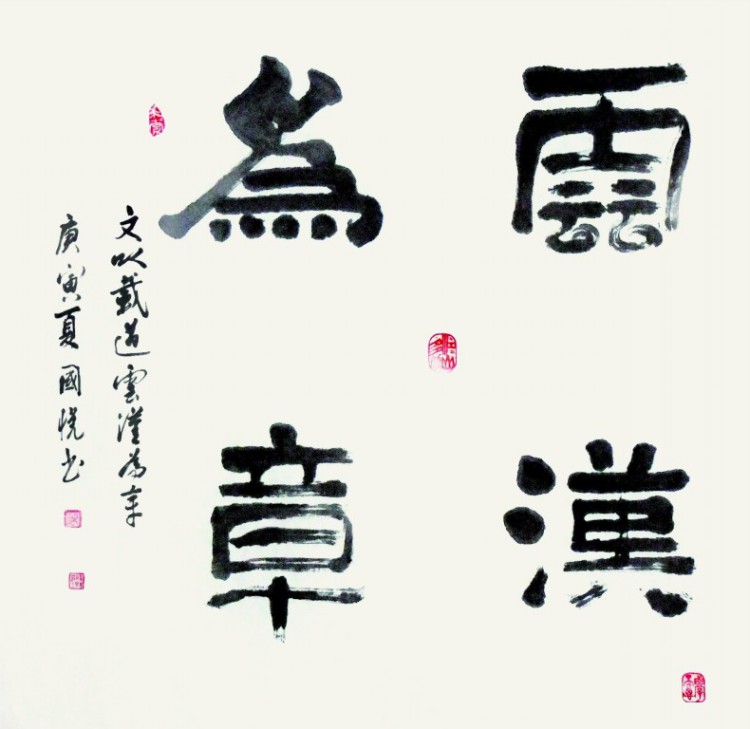 雲漢
為章
文以載道雲漢為章
庚寅夏國悅书